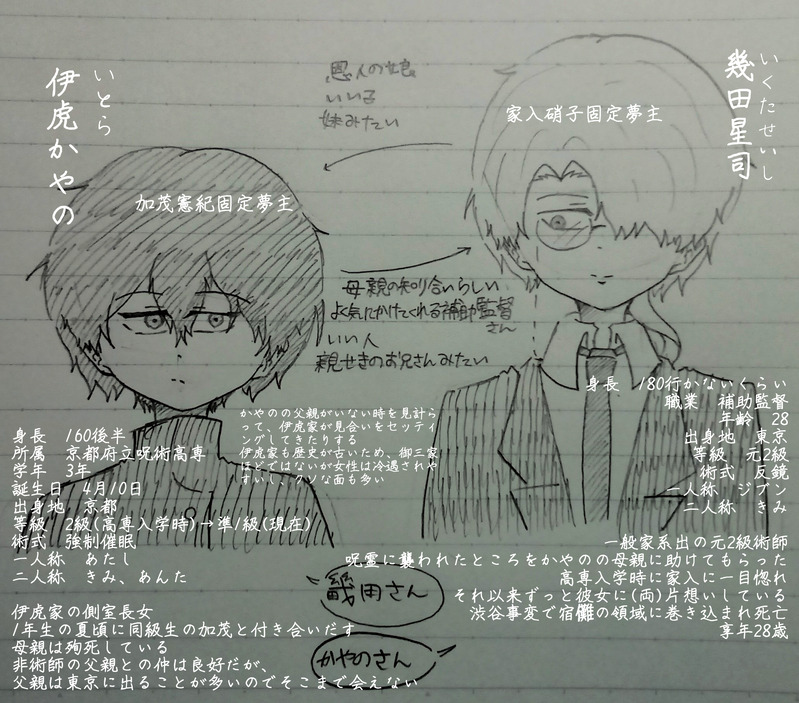 いとら
伊虎かやの
加茂憲紀固定夢主
恩人の娘
いい子
妹みたい
家入硝子固定夢主
いくたせいし
幾田星司
母親の知り合いらしい
よく気にかけてくれる補助監督
さん
いい人
親せきのお兄さんみたい
かやのの父親がいない時を見計ら
って、伊虎家が見合いをセッティ
ングしてきたりする
伊虎家も歴史が古いため、御三家
ほどではないが女性は冷遇されや
すいし、クソな面も多い
身長　160後半
所属　京都府立呪術高専
学年　3年
誕生日　4月10日
出身地　京都
等級　2級(高専入学時)→準1級(現在)
術式　強制催眠
一人称　あたし
二人称　きみ、あんた
伊虎家の側室長女
1年生の夏頃に同級生の加茂と付き合いだす
母親は殉死している
非術師の父親との仲は良好だが、
父親は東京に出ることが多いのでそこまで会えない
身長　180行かないくらい
職業　補助監督
年齢　28
出身地　東京
等級　元2級
術式　反鏡
一人称　ジブン
二人称　きみ
一般家系出の元2級術師
呪霊に襲われたところをかやのの母親に助けてもらった
高専入学時に家入に一目惚れ
それ以来ずっと彼女に(両)片想いしている
渋谷事変で宿儺の領域に巻き込まれ死亡
享年28歳
幾田さん
かやのさん